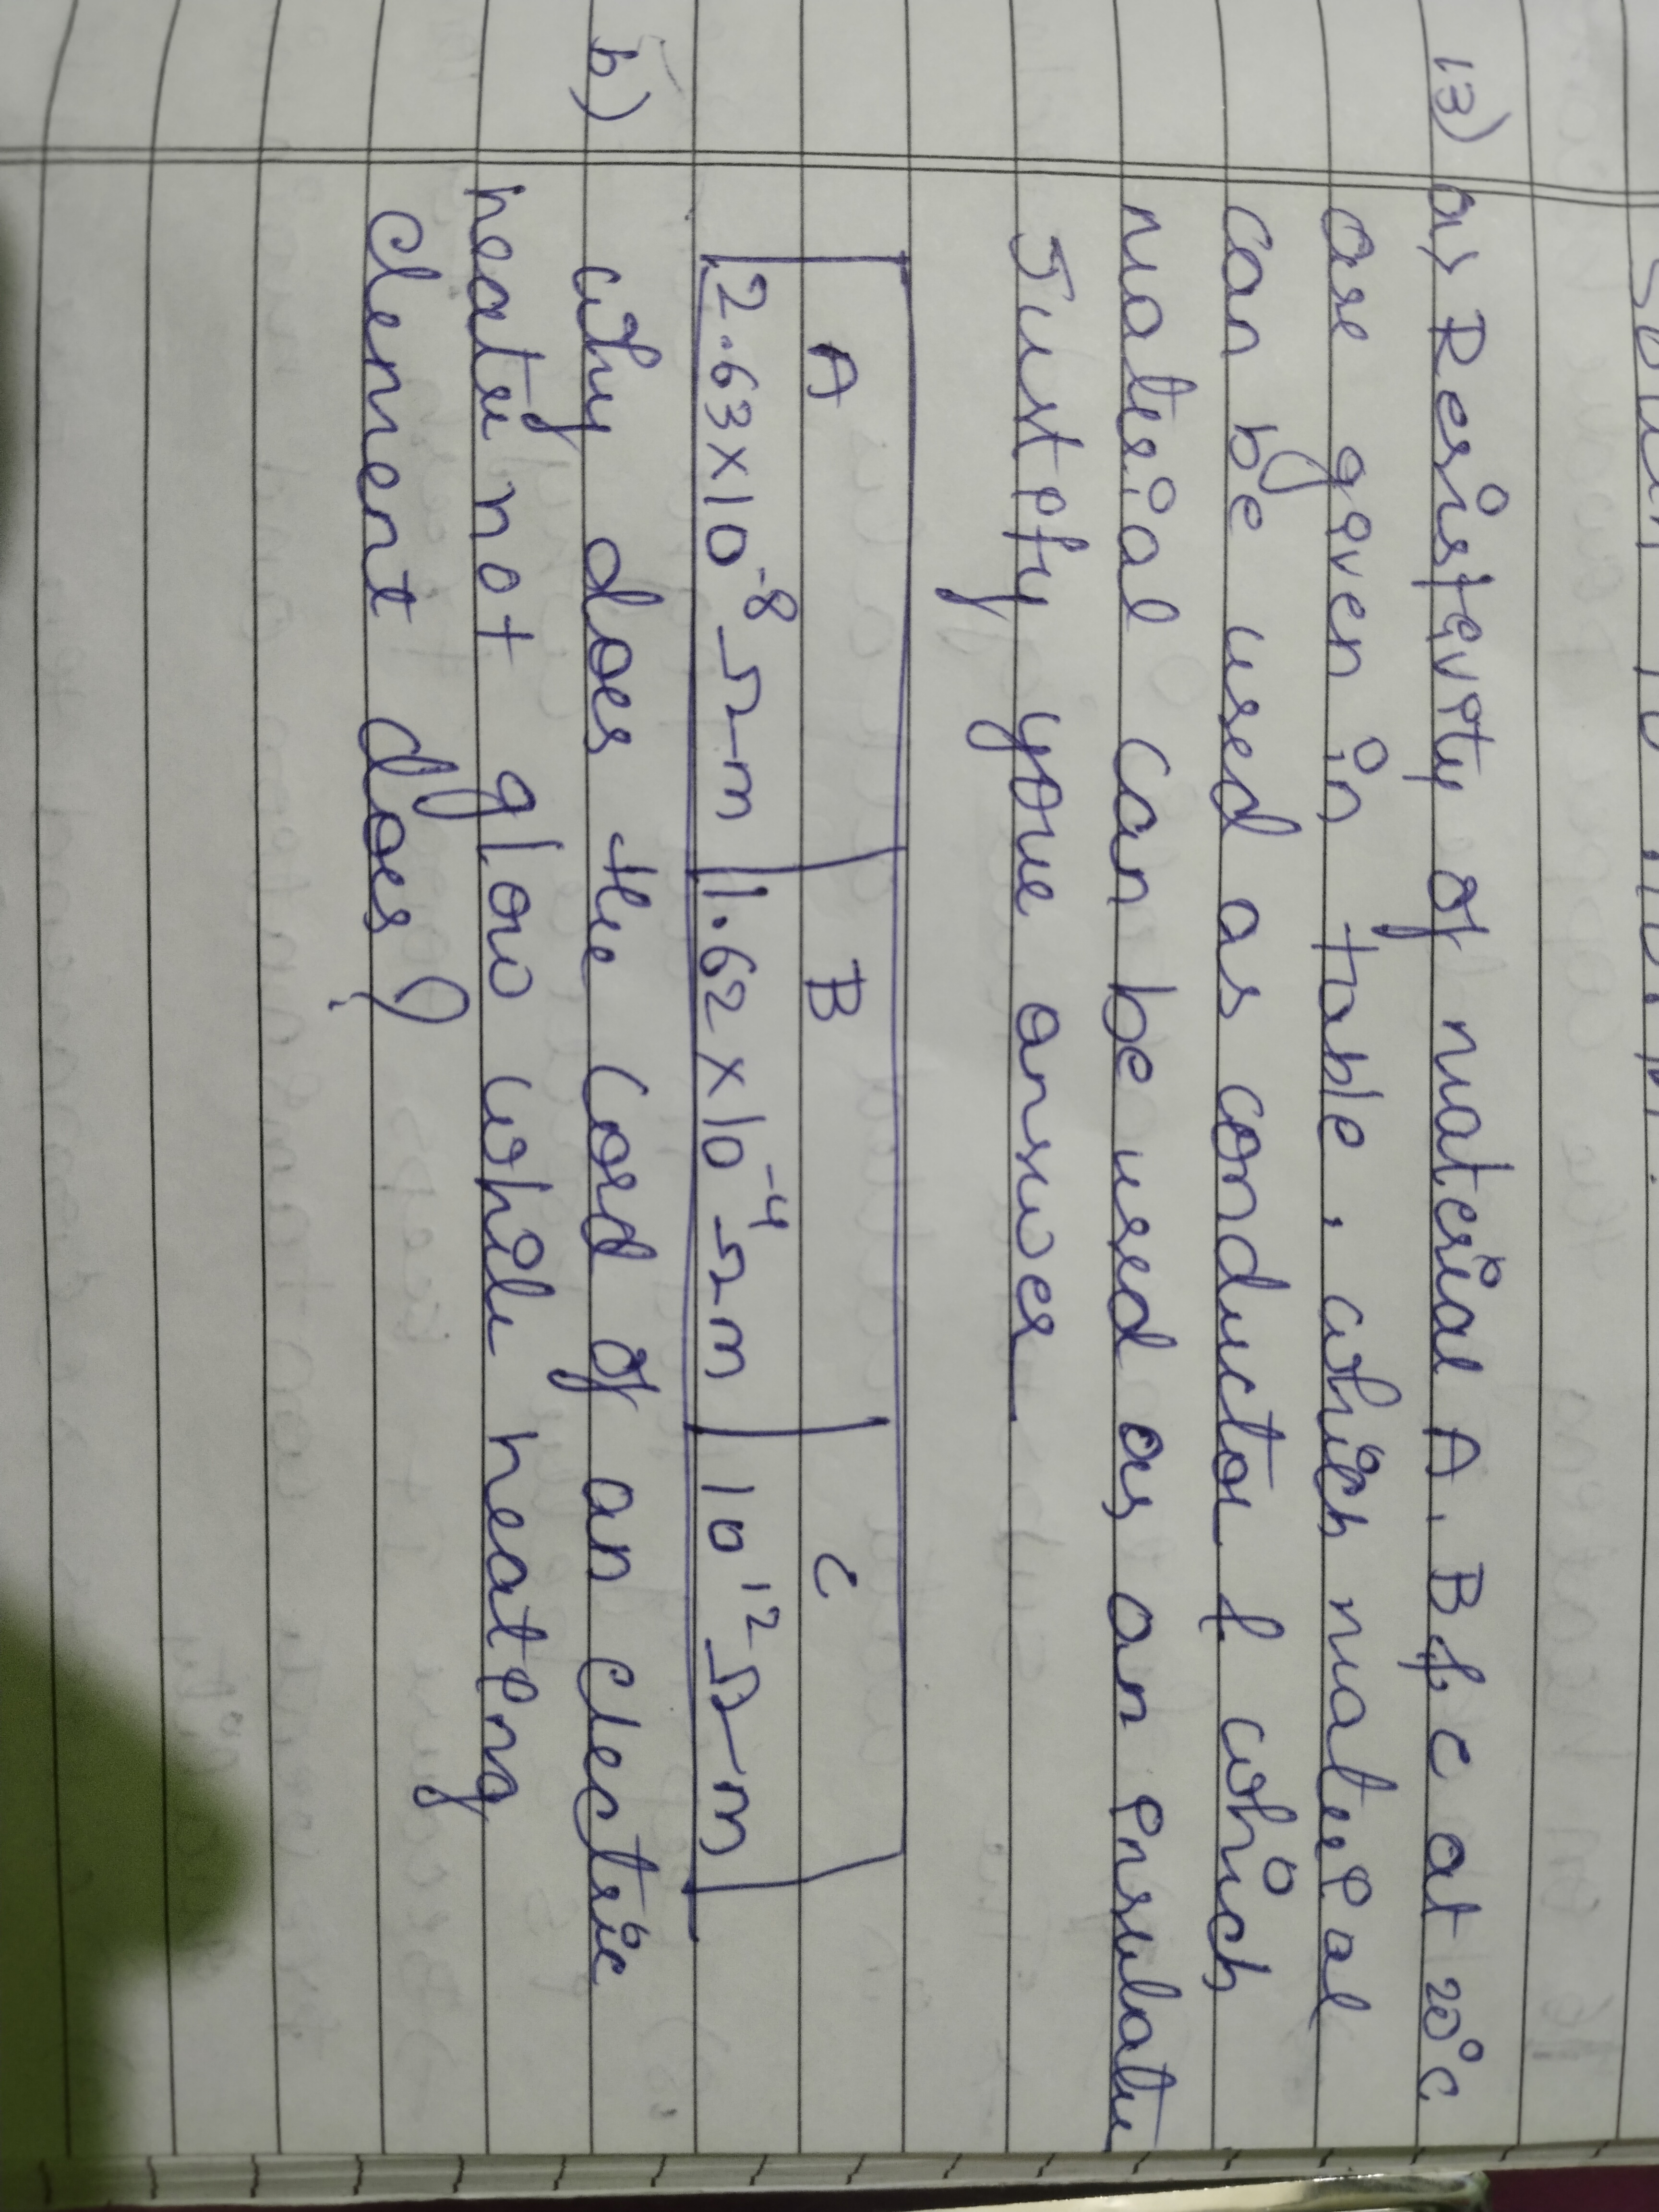 13) a) Resistivity of material A, B & C at 20°C
are given in table, which material
can be used as conductor & which
material can be used as an insulator
Justify your answer
A B C
2.63×10⁻⁸ Ω-m 1.62×10⁻⁴ Ωm 10¹² Ω-m
b) why does the cord of an electric
heater not glow while heating
element does?